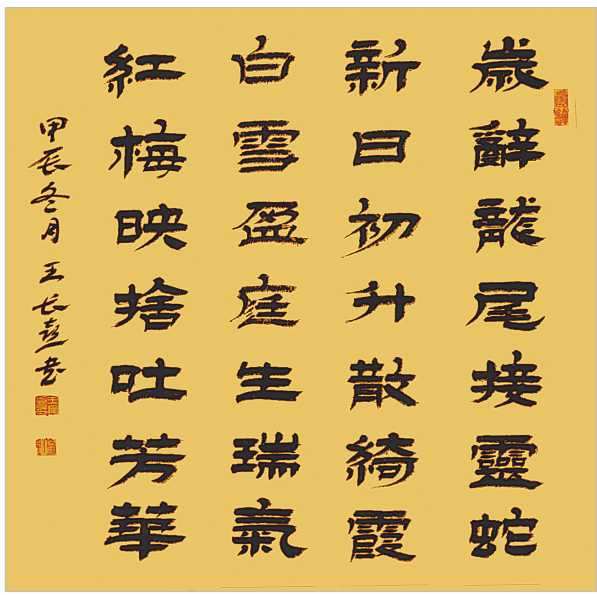 歲辭龍尾接靈蛇
新日初升散綺霞
白雪盈庭生瑞氣
紅梅映捨吐芳華
甲辰冬月王长喜书